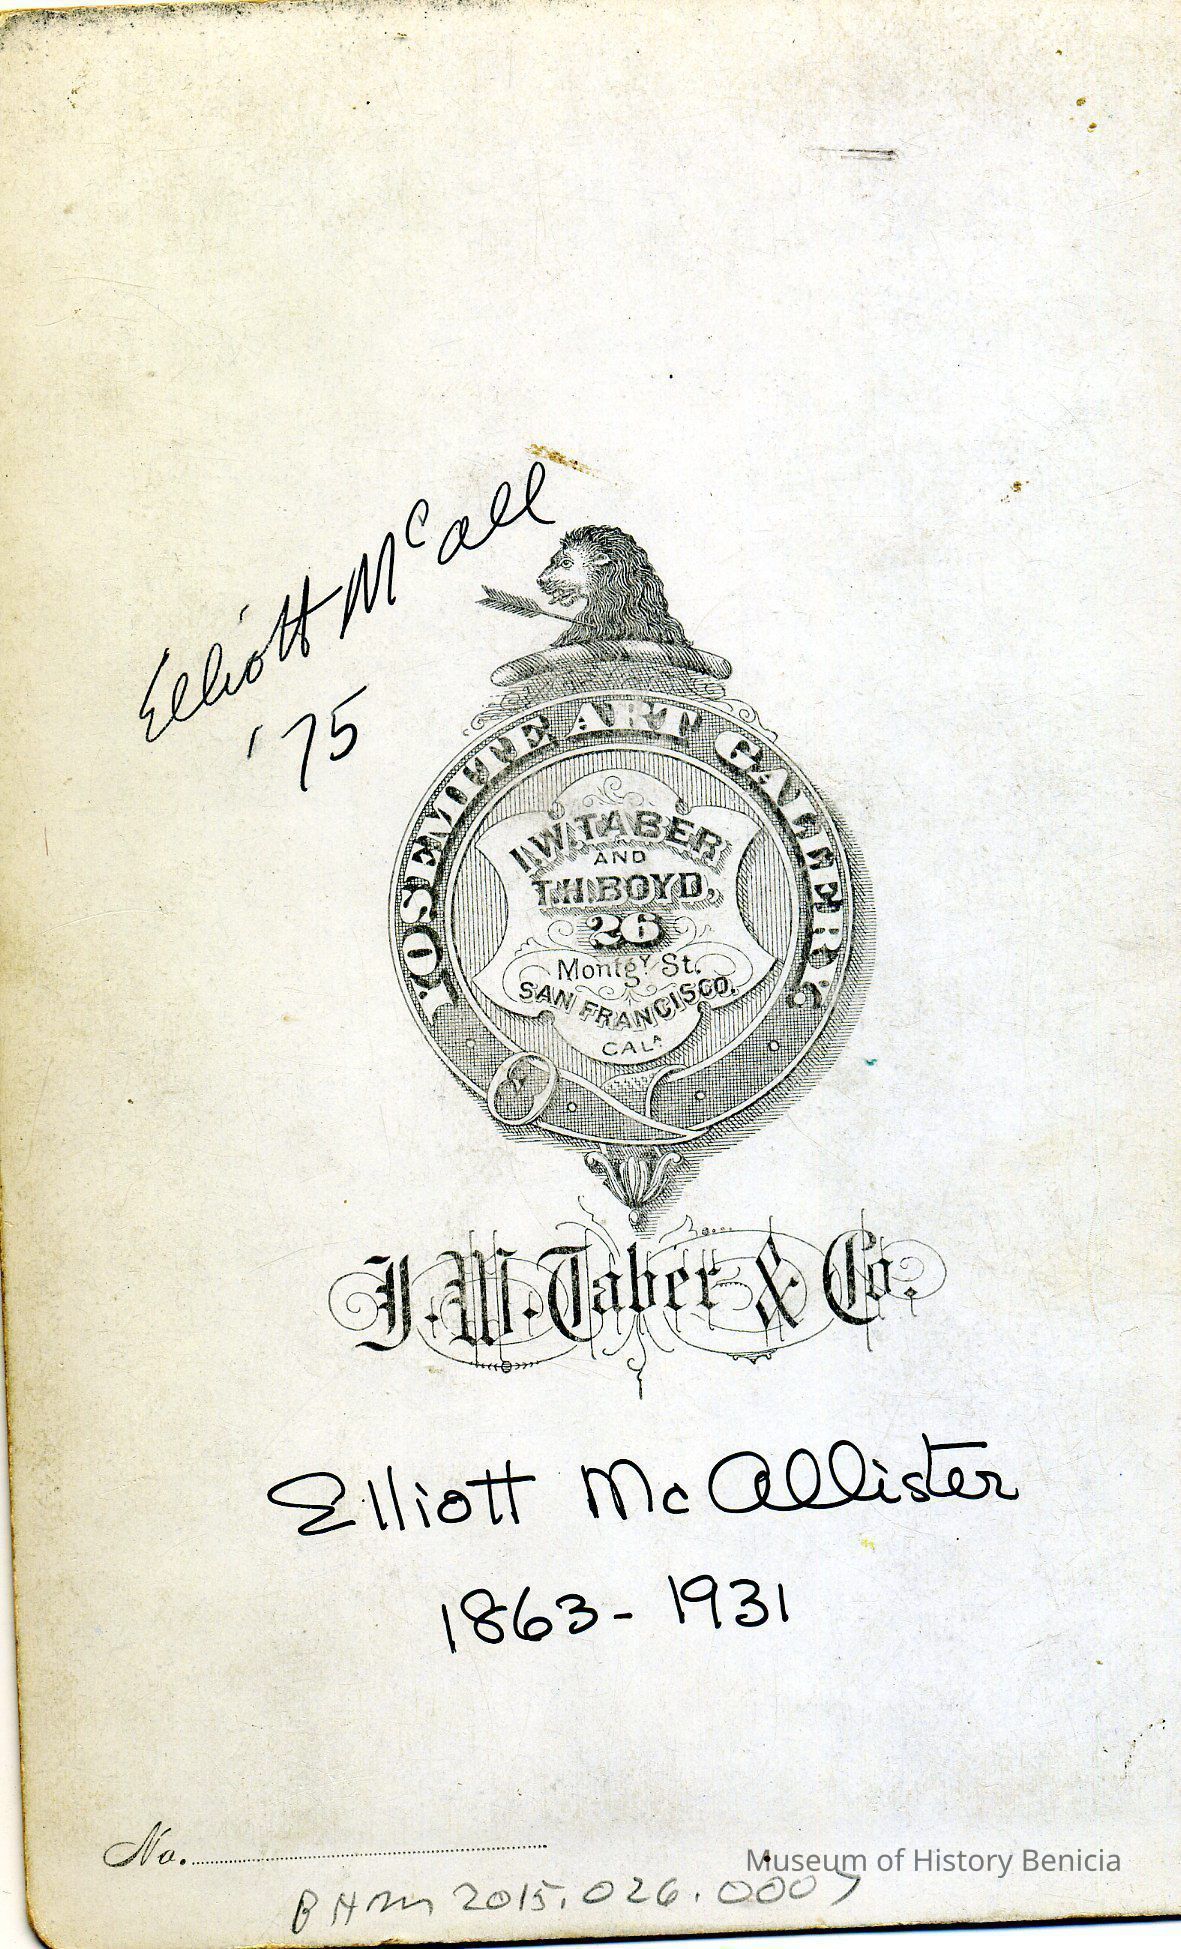 Elliott McAll
'75
YOSEMITE ART GALLERY
I.W. TABER
AND
T.H. BOYD,
26
Montgy St.
SAN FRANCISCO.
CALA
I. W. Taber & Co.
Elliott McAllister
1863-1931
No.
Museum of History Benicia
BHM 2015.026.0007